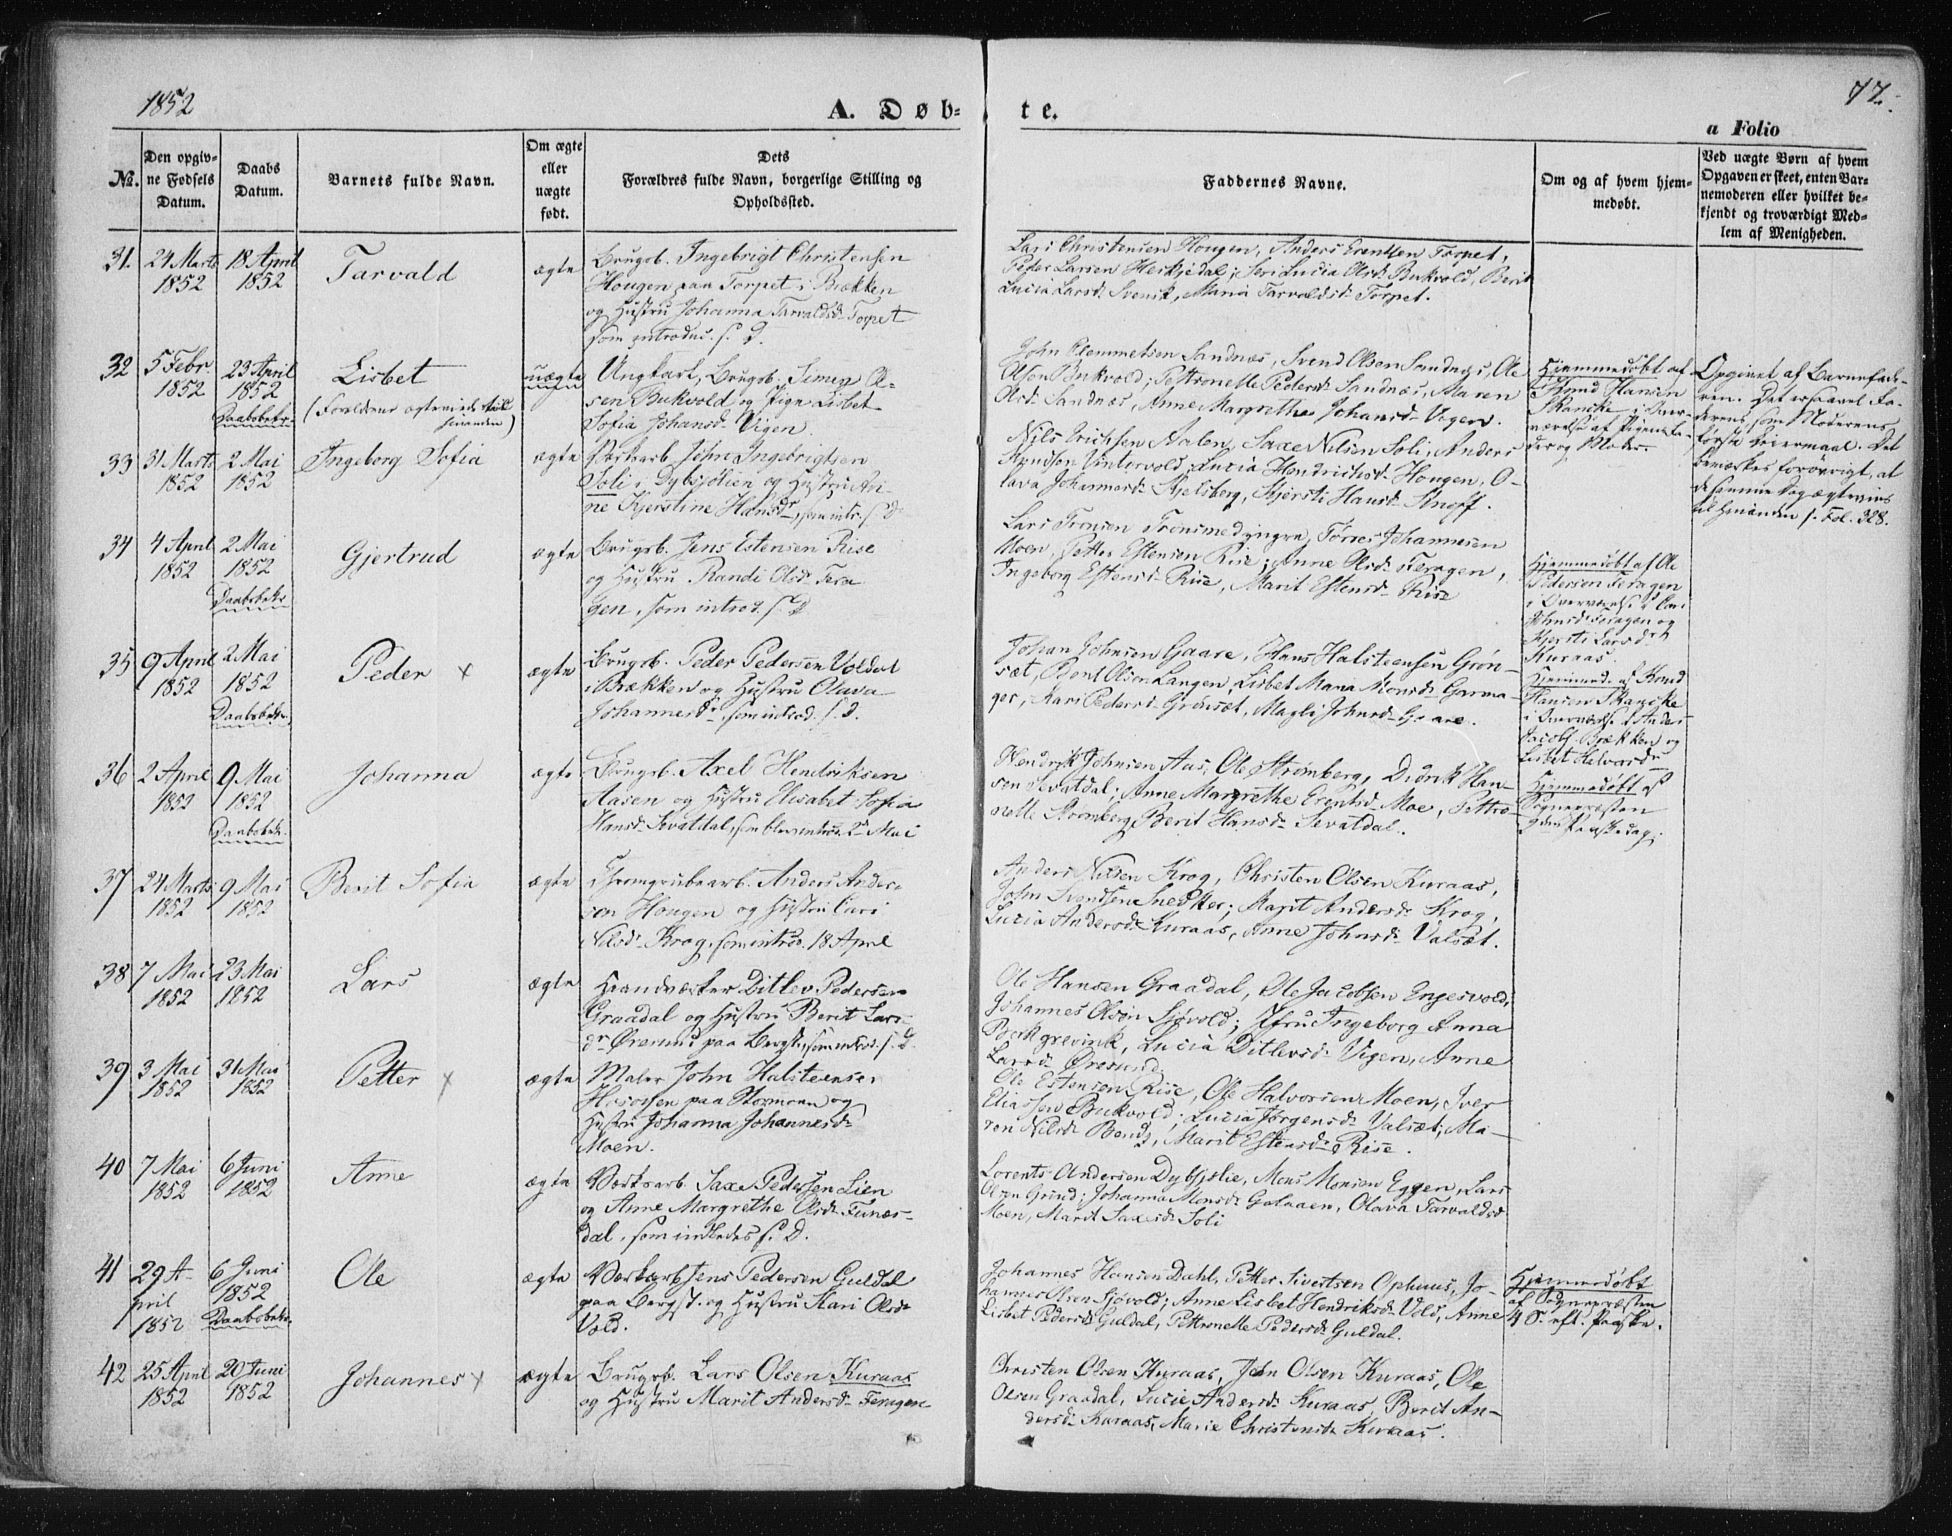 1852
A. Døb-
te.
77.
a Folio
No.
Den opgiv-
ne Fødsels
Datum.
Daabs
Datum.
Barnets fulde Navn.
Om ægte
eller
uægte
født.
Dets
Forældres fulde Navn, borgerlige Stilling og
Opholdssted.
Faddernes Navne.
Om og af hvem hjem-
medøbt.
Ved uægte Børn af hvem
Opgaven er skeet, enten Bar-
nemoderen eller hvilket be-
kjendt og troværdigt Med-
lem af Menigheden.
31.
24 Marts
1852
18 April
1852
Tarvald
ægte
Brugsb. Ingebrigt Christensen
Hougen paa Torpet i Brækken
og Hustru Johanna Tarvaldsdr Torpet
som introduc. s. D.
Lars Christensen Hougen, Anders Erentsen Torpet,
Peder Larsen Herkjedal; Siri Lucia Olsdr Bukvold, Berit
Lucia Larsdr Svensk, Maria Tarvaldsdr Torpet.
32
5 Febr
1852
23 April
1852
Daabsbekr.
Lisbet
(Forældrene ægteviede
hinanden)
uægte
Ungkarl, Brugsb. Simen Ol-
sen Bukvold og Pige Lisbet
Sofia Johansdr Vigen
John Clemmetsen Sandnæs, Svend Olsen Sandnæs, Ole
Olsen Bukvold; Pettronelle Pedersdr Sandnæs, Maren
Olsdr Sandnæs, Anne Margrethe Johansdr Vigen.
Hjemmedøbt af
Hansen
Ranske i Over-
værelse af Pigens Fa-
der og Moder.
Opgivet af Barnefade-
ren. Det er saavel Fa-
derens som Moderens
første Leiermaal. Det
bemærkes forøvrigt, at
de samme Dag ægtevies
til hinanden s. Fol. 328.
33
31 Marts
1852
2 Mai
1852
Ingeborg Sofia
ægte
Værksarb. John Ingebrigtsen
Soli i Dybsjølien og Hustru An-
ne Kjerstine Hansdr, som intr. s. D.
Nils Erichsen Aalen, Saxe Nilsen Soli, Anders
Knudsen Vintervold; Lucia Hendriksdr Hougen, O-
lava Johannesdr Skjelsberg, Kjersti Hansdr Knoff.
34
4 April
1852
2 Mai
1852
Daabsbekr
Gjertrud
ægte
Brugsb. Jens Estensen Rise
og Hustru Randi Olsdr Fera
gen, som introd. s. D
Lars Tronsen Tronsmedyngen, Tørres Johannesen
Moen, Petter Estensen Rise; Anne Olsdr Feragen,
Ingeborg Estensdr Rise, Marit Estensdr Rise
Hjemmedøbt af Ole
Pedersen Feragen
i Overværelse af Cari
Johnsdr Feragen og
Kjersti Larsdr
Kuraas.
35
9 April
1852
2 Mai
1852
Daabsbekr.
Peder x
ægte
Brugsb. Peder Pedersen Voldal
i Brækken og Hustru Olava
Johannesdr, som introd. s. D.
Johan Johnsen Gaare, Hans Halsteensen Grøn-
sæt, Bent Olsen Langen, Lisbet Maria Monsdr Garma-
ger, Kari Pedersdr Grønsæt, Magli Johnsdr Gaare.
Hjemmed. af Knud
Hansen Ranske
i Overværelse af Anders
Jacobs. Brækken og
Lisbet Halvorsdr
36
2 April
1852
9 Mai
1852
Daabsbekr.
Johanna
ægte
Brugsb. Axel Hendriksen
Aasen og Hustru Elisabet Sofia
Hansdr Sevatdal, som blev introd. 2d Mai
Hendrik Johnsen Aas, Ole Strømberg, Didrik Han-
sen Sevatdal; Anne Margrethe Erentsdr Moe, Pettro-
nelle Strømberg, Berit Hansdr Sevatdal.
Hjemmedøbt af
Sognepræsten
2den Paaskedag.
37
24 Marts
1852
9 Mai
1852
Berit Sofia
ægte
Chromgrubearb. Anders Ander-
sen Hougen og Hustru Cari
Nilsdr Krog, som introd. 18 April
Anders Nilsen Krog, Christen Olsen Kuraas,
John Svendsen Snedker; Marit Andersdr Krog,
Lucia Andersdr Kuraas, Anne Johnsdr Valsæt.
38
7 Mai
1852
23 Mai
1852
Lars
ægte
Haandværker Ditlev Pedersen
Graadal og Hustru Berit Lars-
dr Øresund paa Bergst., som introd. s. D.
Ole Hansen Graadal, Ole Jacobsen Engesvold,
Johannes Olsen Sjøvold; Jfru Ingeborg Anna
Bjerkgrevink, Lucia Ditlevsdr Vigen, Anne
Larsdr Øresund
39
3 Mai
1852
31 Mai
1852
Petter x
ægte
Maler John Halsteensen
paa Stormoen og
Hustru Johanna Johannesdr
Moen.
Ole Estensen Rise, Ole Halvorsen Moen, Iver
Eliassen Bukvold; Lucia Jørgensdr Valsæt, Ma-
ren Nilsdr Bends, Marit Estensdr Rise.
40
7 Mai
1852
6 Juni
1852
Anne
ægte
Værksarb. Saxe Pedersen Lien
og Anne Margrethe Olsdr Funæs-
dal, som inledes s. D.
Lorents Andersen Dybsjølie, Mons Monsen Eggen, Lars
Olsen Grind; Johanna Monsdr Galaaen, Olava Tarvaldsdr
Moen, Marit Saxesdr Soli
41
29 A-
pril
1852
6 Juni
1852
Daabsbekr.
Ole
ægte
Værksarb Jens Pedersen Guldal
paa Bergst. og Hustru Kari Olsdr
Vold.
Johannes Hansen Dahl, Petter Sivertsen Ophuus, Jo-
hannes Olsen Sjøvold; Anne Lisbet Hendriksdr Vold, Anne
Lisbet Pedersdr Guldal, Pettronelle Pedersdr Guldal.
Hjemmedøbt
af Sognepræsten
4 S. eft. Paaske.
42
25 April
1852
20 Juni
1852
Johannes x
ægte
Brugsb. Lars Olsen Kuraas
og Hustru Marit Andersdr Feragen
Christen Olsen Kuraas, John Olsen Kuraas, Ole
Olsen Graadal, Lucie Andersdr Kuraas, Berit An-
dersdr Kuraas, Marie Christensdr Kuraas.